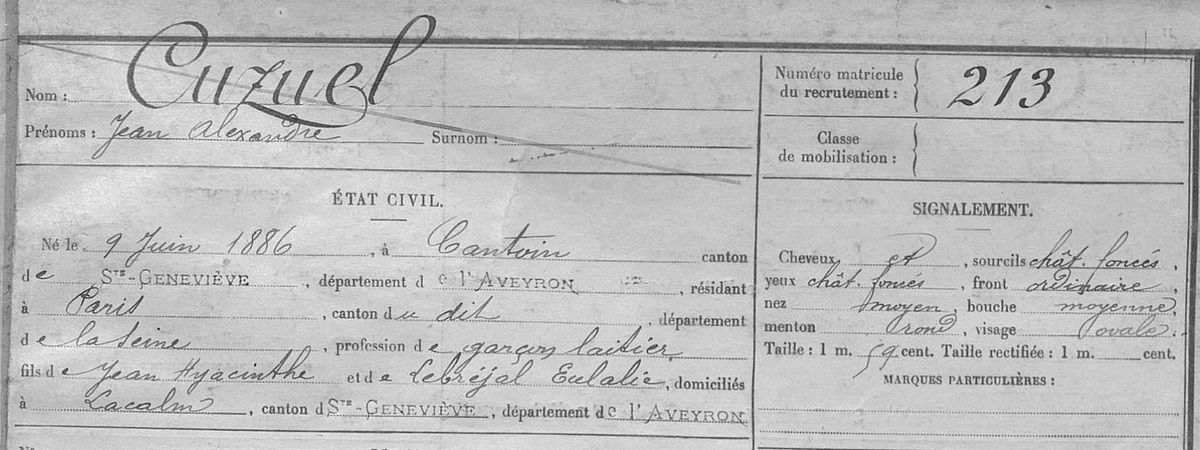 Nom : Cuzuel
Prénoms : Jean Alexandre Surnom :
ÉTAT CIVIL.
Né le 9 Juin 1886, à Cantoin canton
de STE-GENEVIÈVE, département de l'AVEYRON, résidant
à Paris, canton du dit, département
de la Seine, profession de garçon laitier,
fils de Jean Hyacinthe et de Lebréjal Eulalie, domiciliés
à Lacalm, canton d STE-GENEVIÈVE, département de l'AVEYRON
Numéro matricule
du recrutement : 213
Classe
de mobilisation :
SIGNALEMENT.
Cheveux et, sourcils chât. foncés,
yeux chât. foncés, front ordinaire,
nez moyen, bouche moyenne,
menton rond, visage ovale.
Taille : 1 m. 59 cent. Taille rectifiée : 1 m. cent.
MARQUES PARTICULIÈRES :